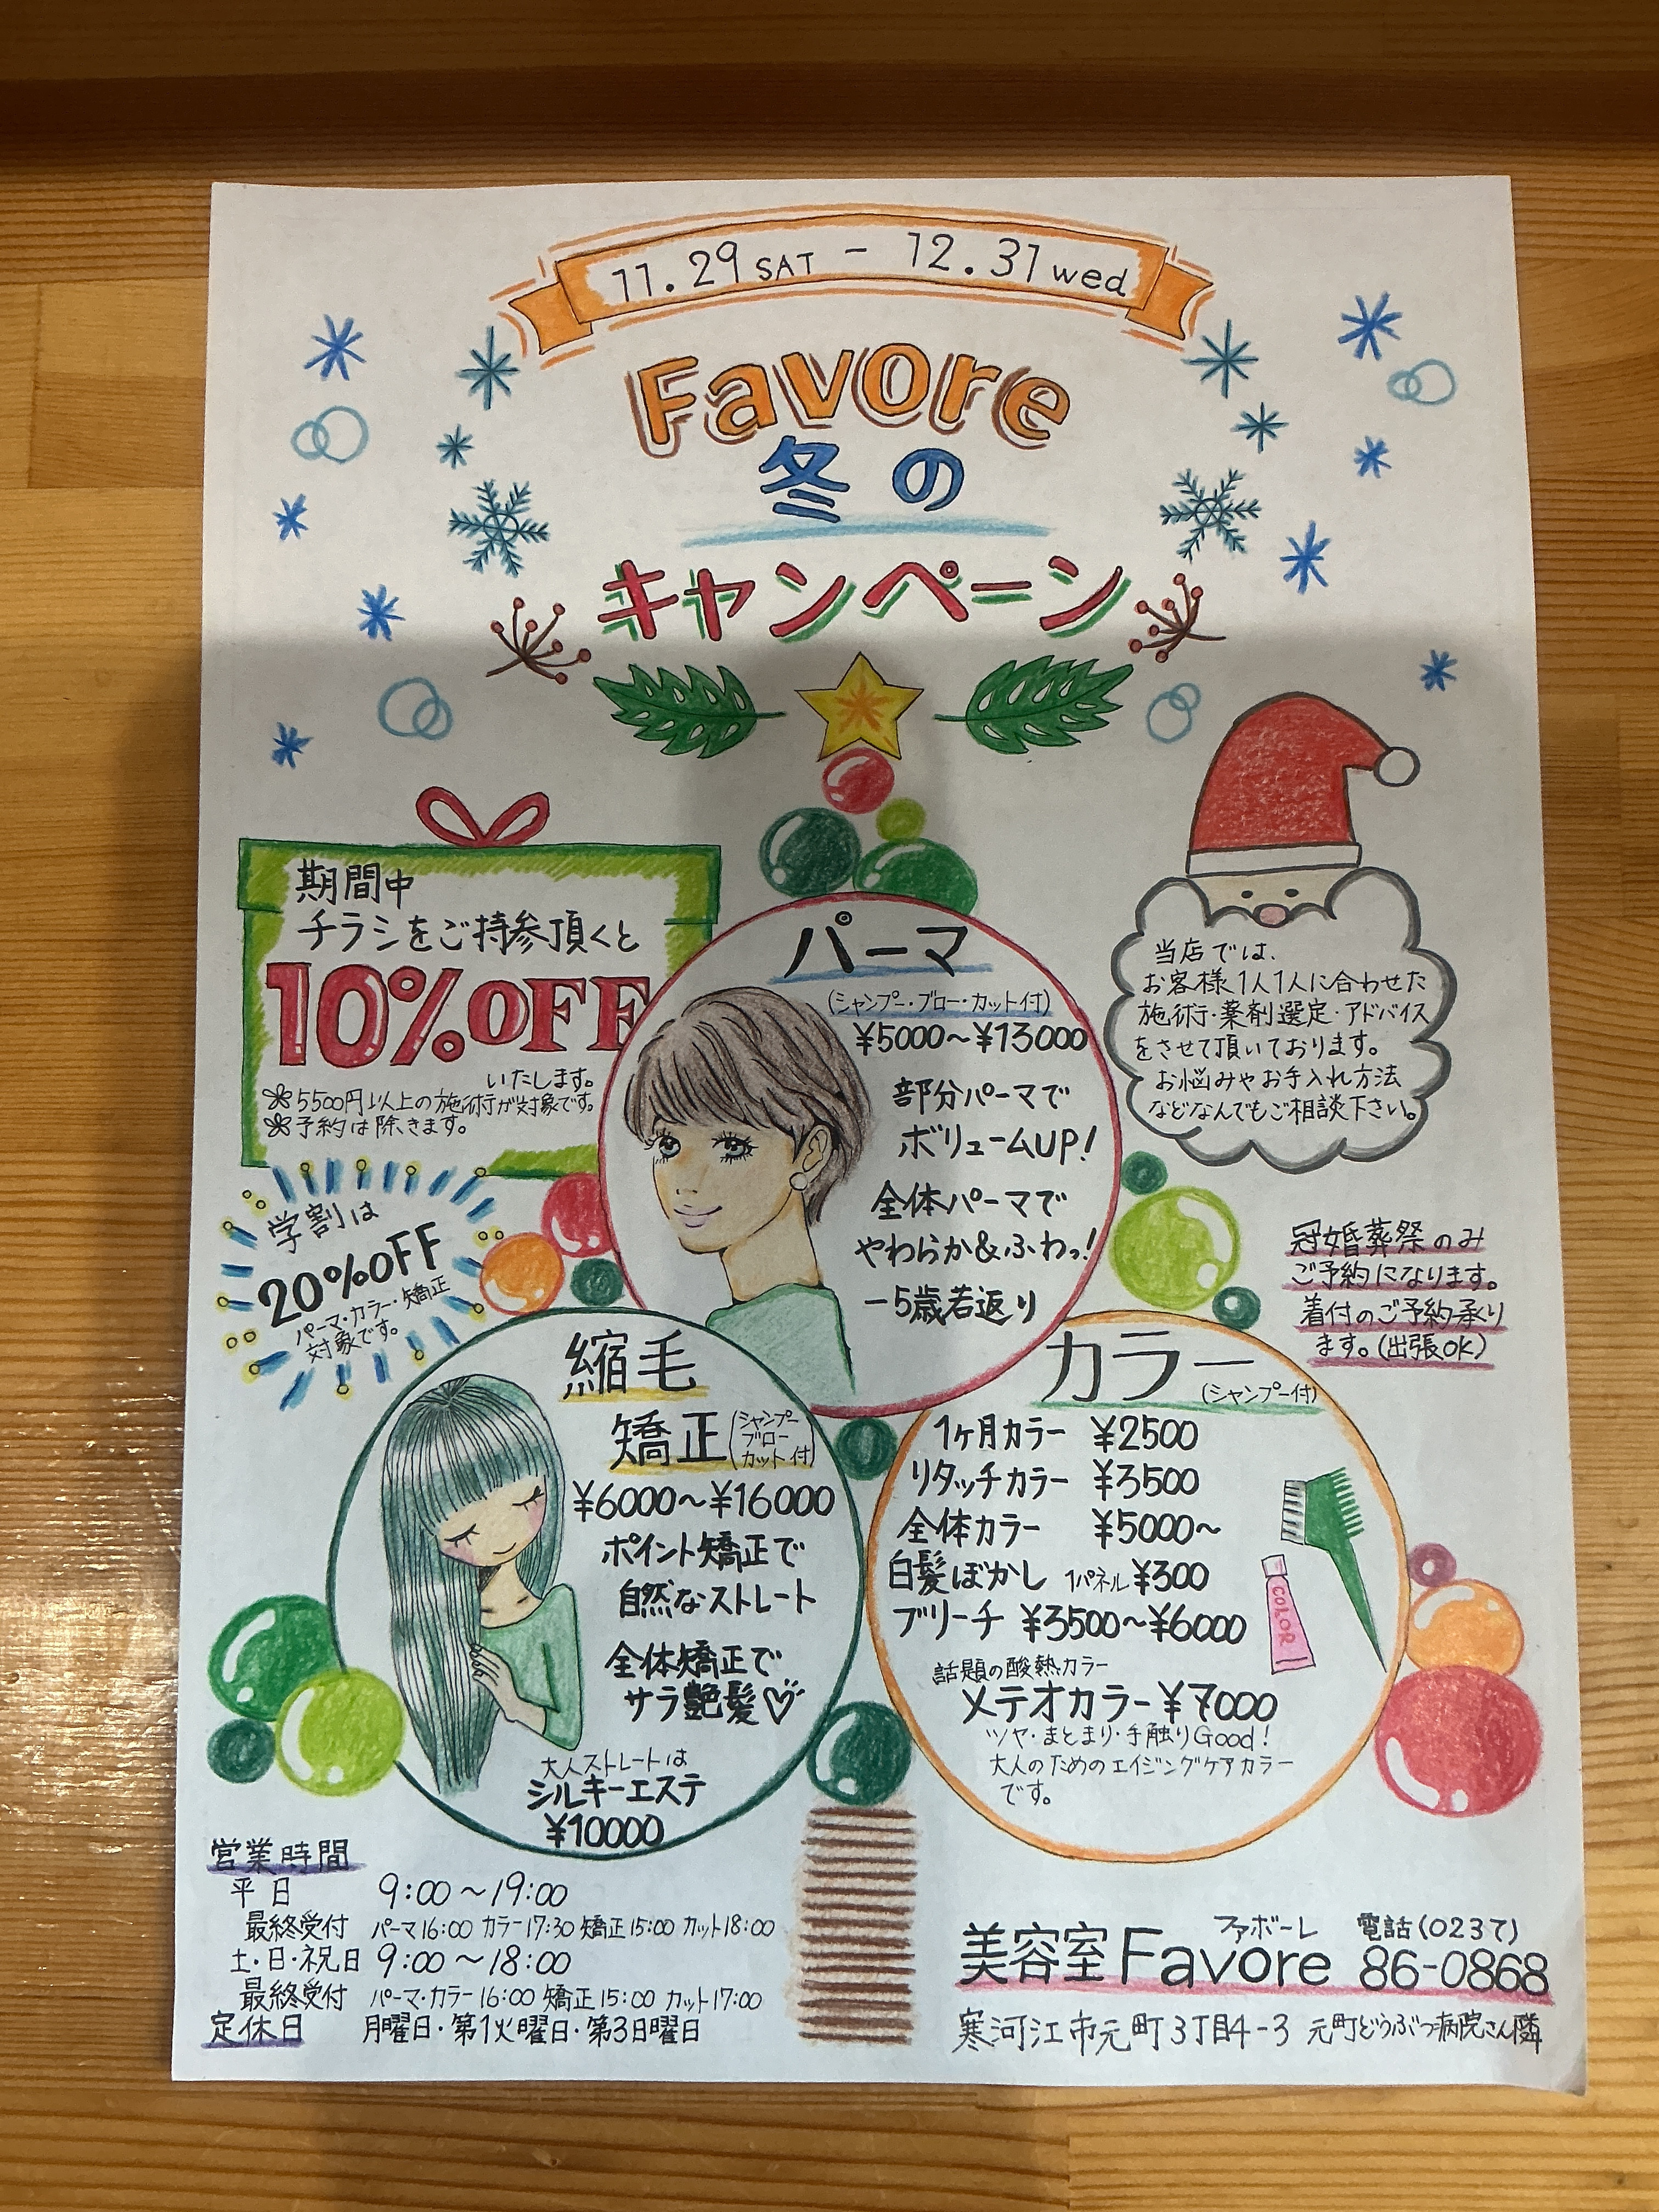 11.29 SAT - 12.31 wed
Favore
冬の
キャンペーン
期間中
チラシをご持参頂くと
10%OFF
いたします。
5500円以上の施術が対象です。
予約は除きます。
学割は
20%OFF
パーマ・カラー・矯正
対象です。
パーマ
(シャンプー・ブロー・カット付)
¥5000～¥13000
部分パーマで
ボリュームUP!
全体パーマで
やわらか&ふわっ!
－5歳若返り
当店では、
お客様1人1人に合わせた
施術・薬剤選定・アドバイス
をさせて頂いております。
お悩みやお手入れ方法
などなんでもご相談下さい。
冠婚葬祭のみ
ご予約になります。
着付のご予約承り
ます。(出張OK)
縮毛
矯正
(シャンプー
ブロー
カット付)
¥6000～¥16000
ポイント矯正で
自然なストレート
全体矯正で
サラ艶髪♡
大人ストレートは
シルキーエステ
¥10000
カラー
(シャンプー付)
1ヶ月カラー ¥2500
リタッチカラー ¥3500
全体カラー ¥5000～
白髪ぼかし 1パネル¥300
ブリーチ ¥3500～¥6000
COLOR
話題の酸熱カラー
メテオカラー¥7000
ツヤ・まとまり・手触りGood!
大人のためのエイジングケアカラー
です。
営業時間
平日 9:00～19:00
最終受付 パーマ16:00 カラー17:30 矯正15:00 カット18:00
土・日・祝日 9:00～18:00
最終受付 パーマ・カラー16:00 矯正15:00 カット17:00
定休日 月曜日・第1火曜日・第3日曜日
ファボーレ 電話(0237)
美容室Favore 86-0868
寒河江市元町3丁目4-3 元町どうぶつ病院さん隣